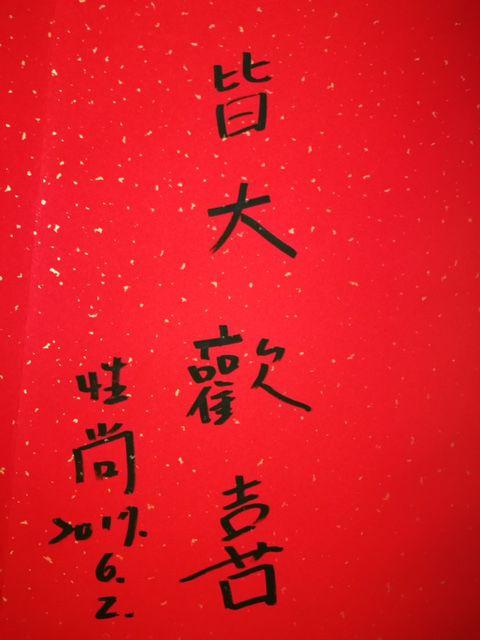 皆大歡喜
性尚
2017.
6.
2.